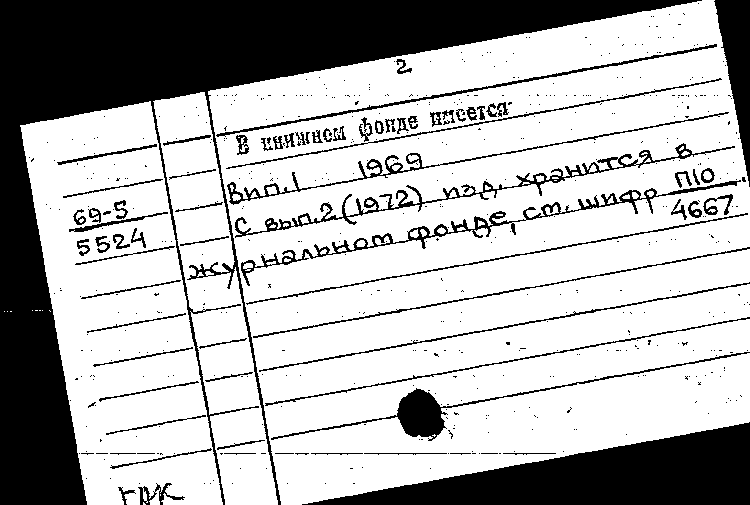 2
В книжном фонде имеется
69-5
5524
Вип.1 1969
С вып.2 (1972) изд. хранится в
журнальном фонде, ст. шифр П10
4667
ГПК